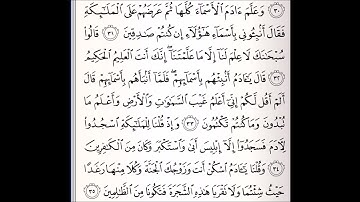 وَعَلَّمَ ءَادَمَ ٱلْأَسْمَآءَ كُلَّهَا ثُمَّ عَرَضَهُمْ عَلَى ٱلْمَلَٰٓئِكَةِ
فَقَالَ أَنۢبِـُٔونِى بِأَسْمَآءِ هَٰٓؤُلَآءِ إِن كُنتُمْ صَٰدِقِينَ ٣١ قَالُوا۟
سُبْحَٰنَكَ لَا عِلْمَ لَنَآ إِلَّا مَا عَلَّمْتَنَآ إِنَّكَ أَنتَ ٱلْعَلِيمُ ٱلْحَكِيمُ
٣٢ قَالَ يَٰٓـَٔادَمُ أَنۢبِئْهُم بِأَسْمَآئِهِمْ فَلَمَّآ أَنۢبَأَهُم بِأَسْمَآئِهِمْ قَالَ
أَلَمْ أَقُل لَّكُمْ إِنِّىٓ أَعْلَمُ غَيْبَ ٱلسَّمَٰوَٰتِ وَٱلْأَرْضِ وَأَعْلَمُ مَا
تُبْدُونَ وَمَا كُنتُمْ تَكْتُمُونَ ٣٣ وَإِذْ قُلْنَا لِلْمَلَٰٓئِكَةِ ٱسْجُدُوا۟
لِـَٔادَمَ فَسَجَدُوٓا۟ إِلَّآ إِبْلِيسَ أَبَىٰ وَٱسْتَكْبَرَ وَكَانَ مِنَ ٱلْكَٰفِرِينَ
٣٤ وَقُلْنَا يَٰٓـَٔادَمُ ٱسْكُنْ أَنتَ وَزَوْجُكَ ٱلْجَنَّةَ وَكُلَا مِنْهَا رَغَدًا
حَيْثُ شِئْتُمَا وَلَا تَقْرَبَا هَٰذِهِ ٱلشَّجَرَةَ فَتَكُونَا مِنَ ٱلظَّٰلِمِينَ ٣٥